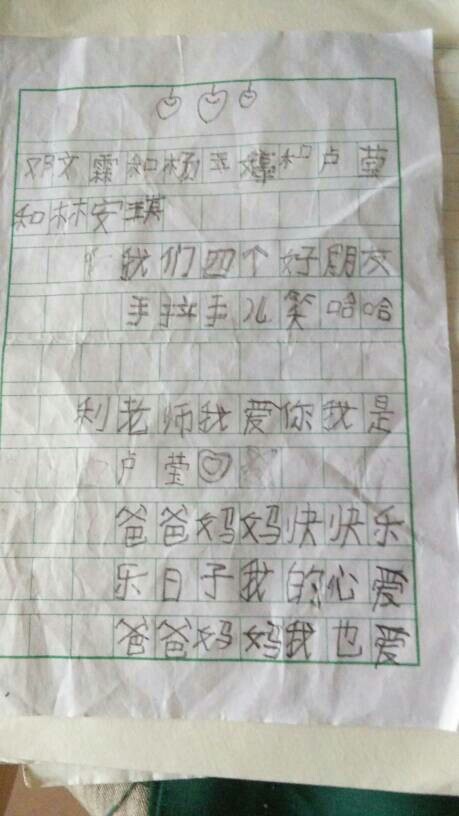 邓文霖和杨玉婷和卢莹
和林安琪
我们四个好朋友
手拉手儿笑哈哈
利老师我爱你我是
卢莹
爸爸妈妈快快乐
乐日子我的心爱
爸爸妈妈我也爱